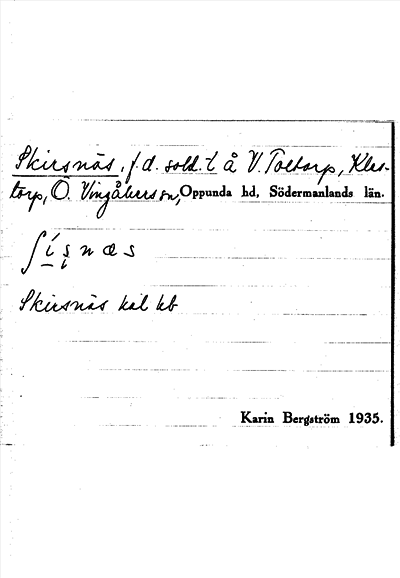 Skirsnäs, f.d. sold. t å V. Toltorp, Kles-
torp, Ö. Vingåkers sn, Oppunda hd, Södermanlands län.
ʃísnæs
Skirsnäs kal kb
Karin Bergström 1935.